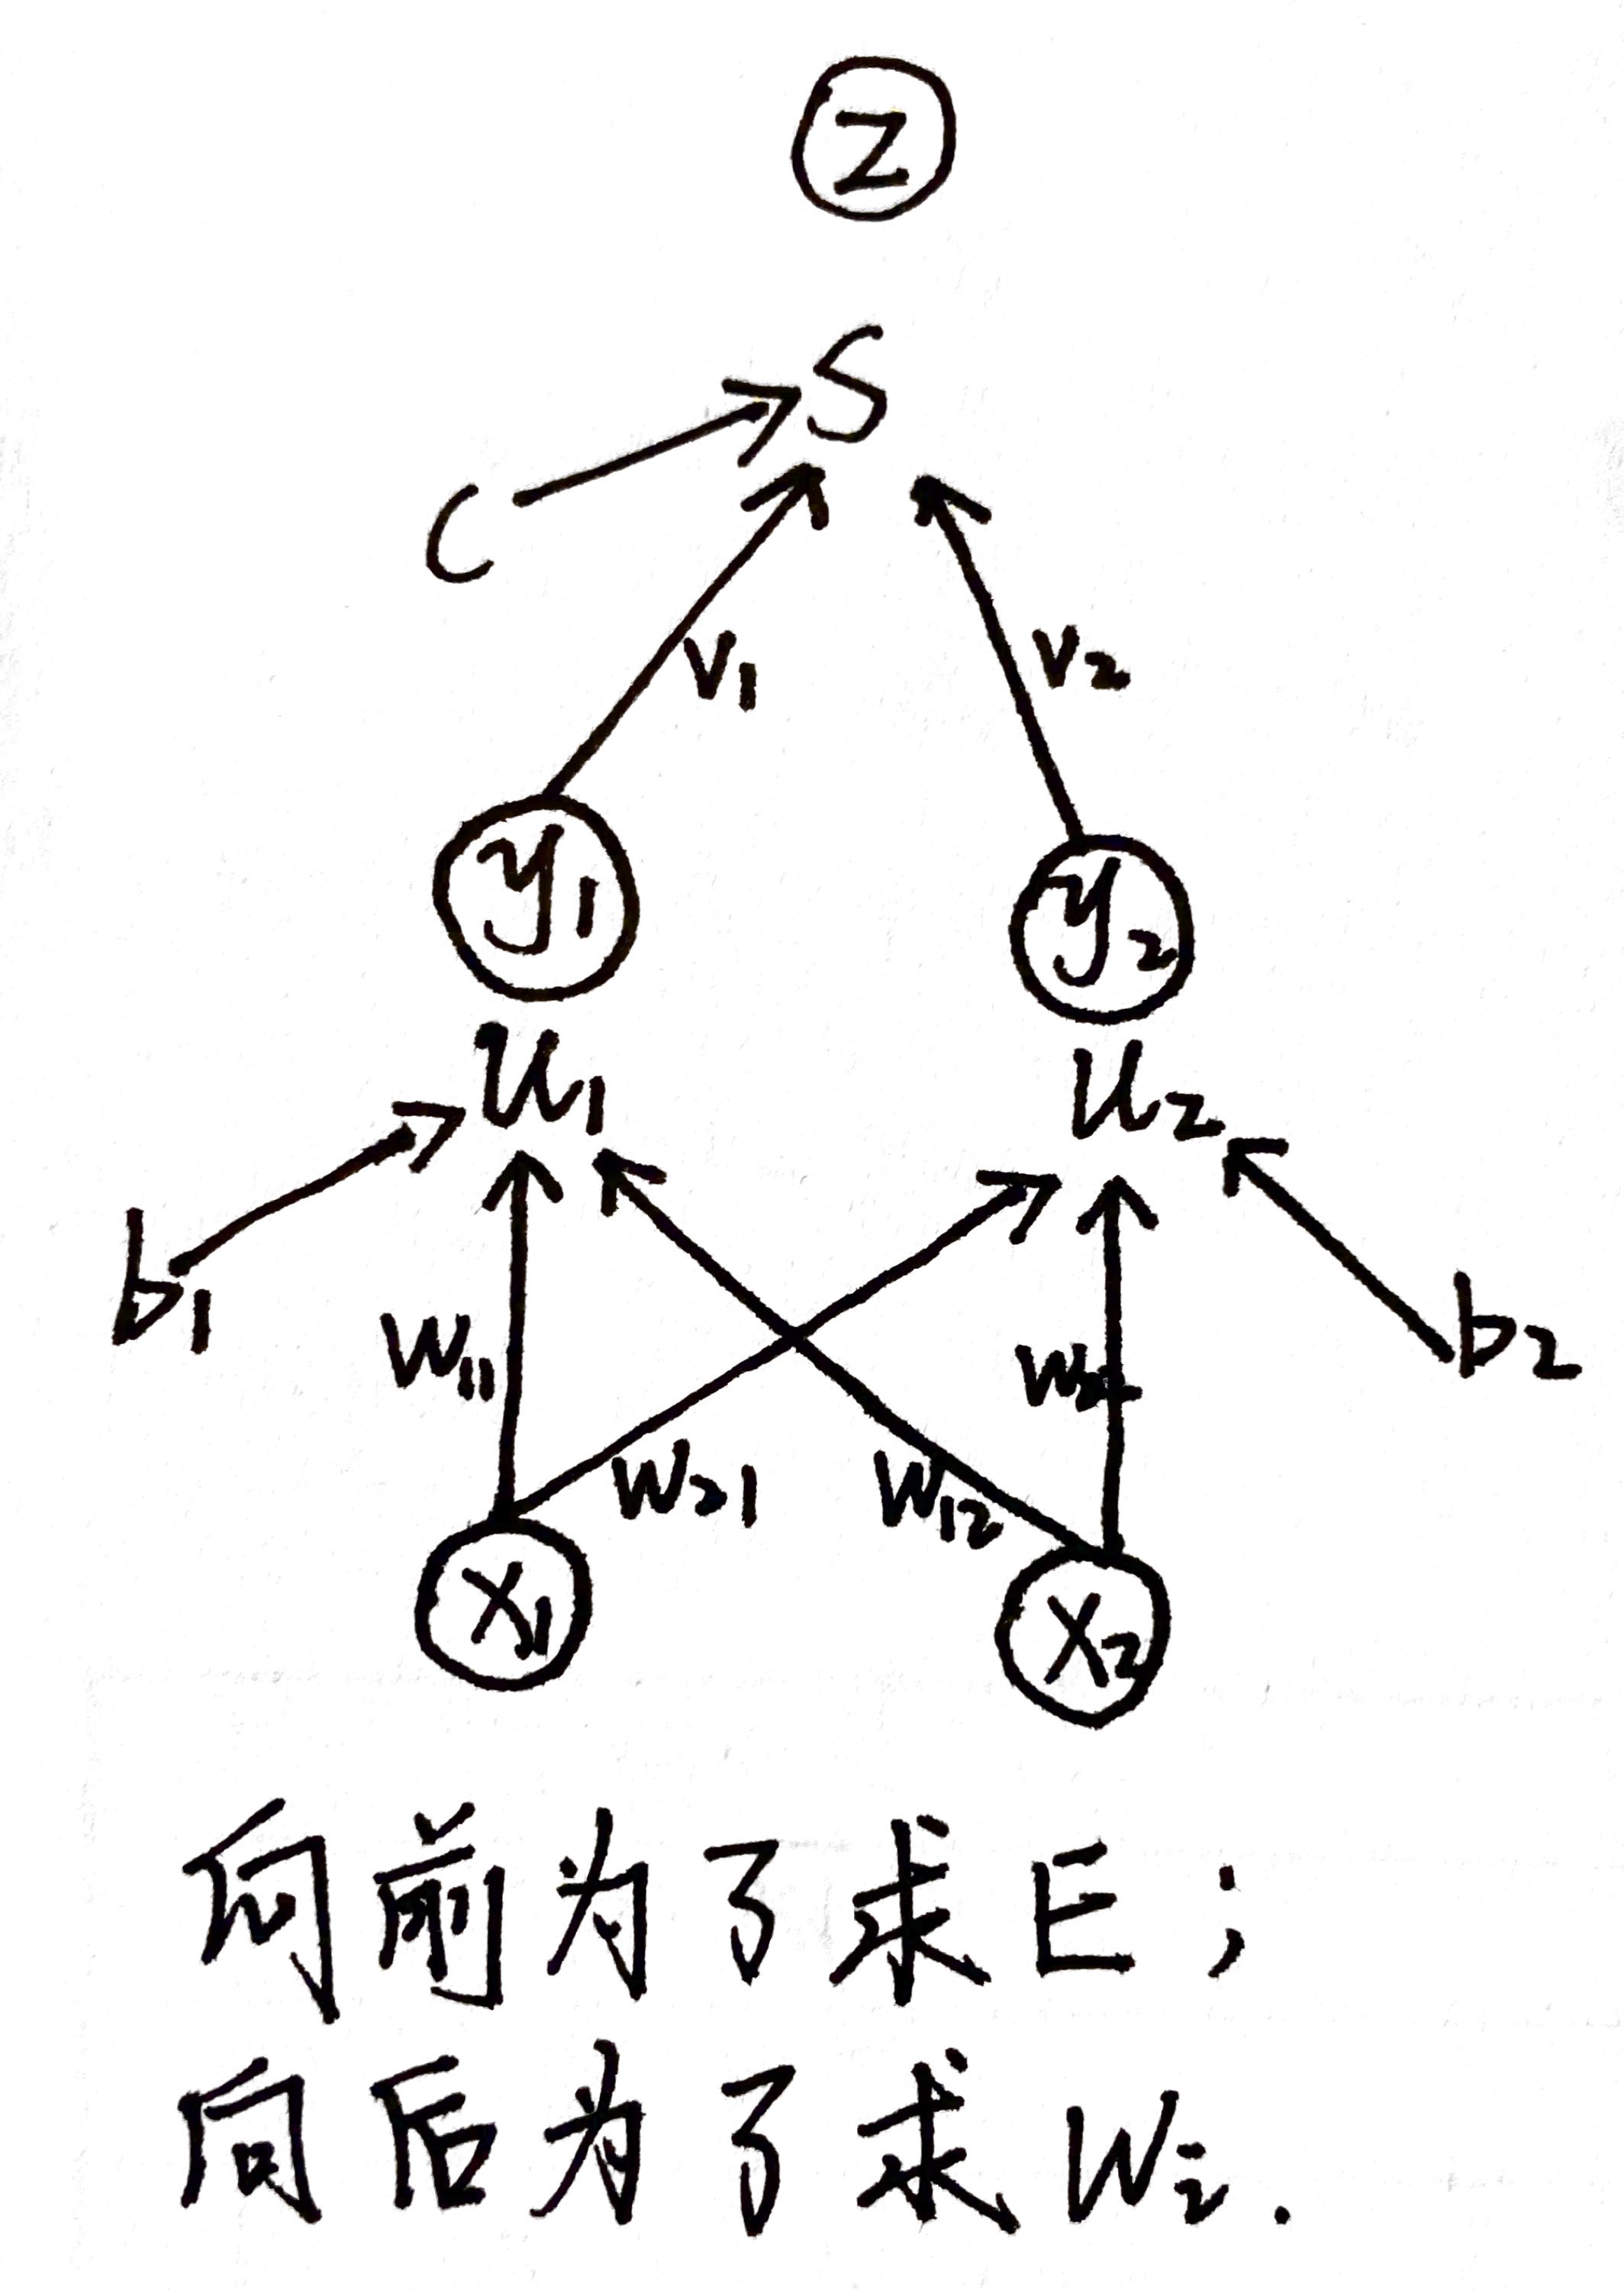 Z
S
C
V1 V2
y1 y2
u1 u2
b1
b2
W11
W21 W12
X1 X2
向前为了求E；
向后为了求Wi.